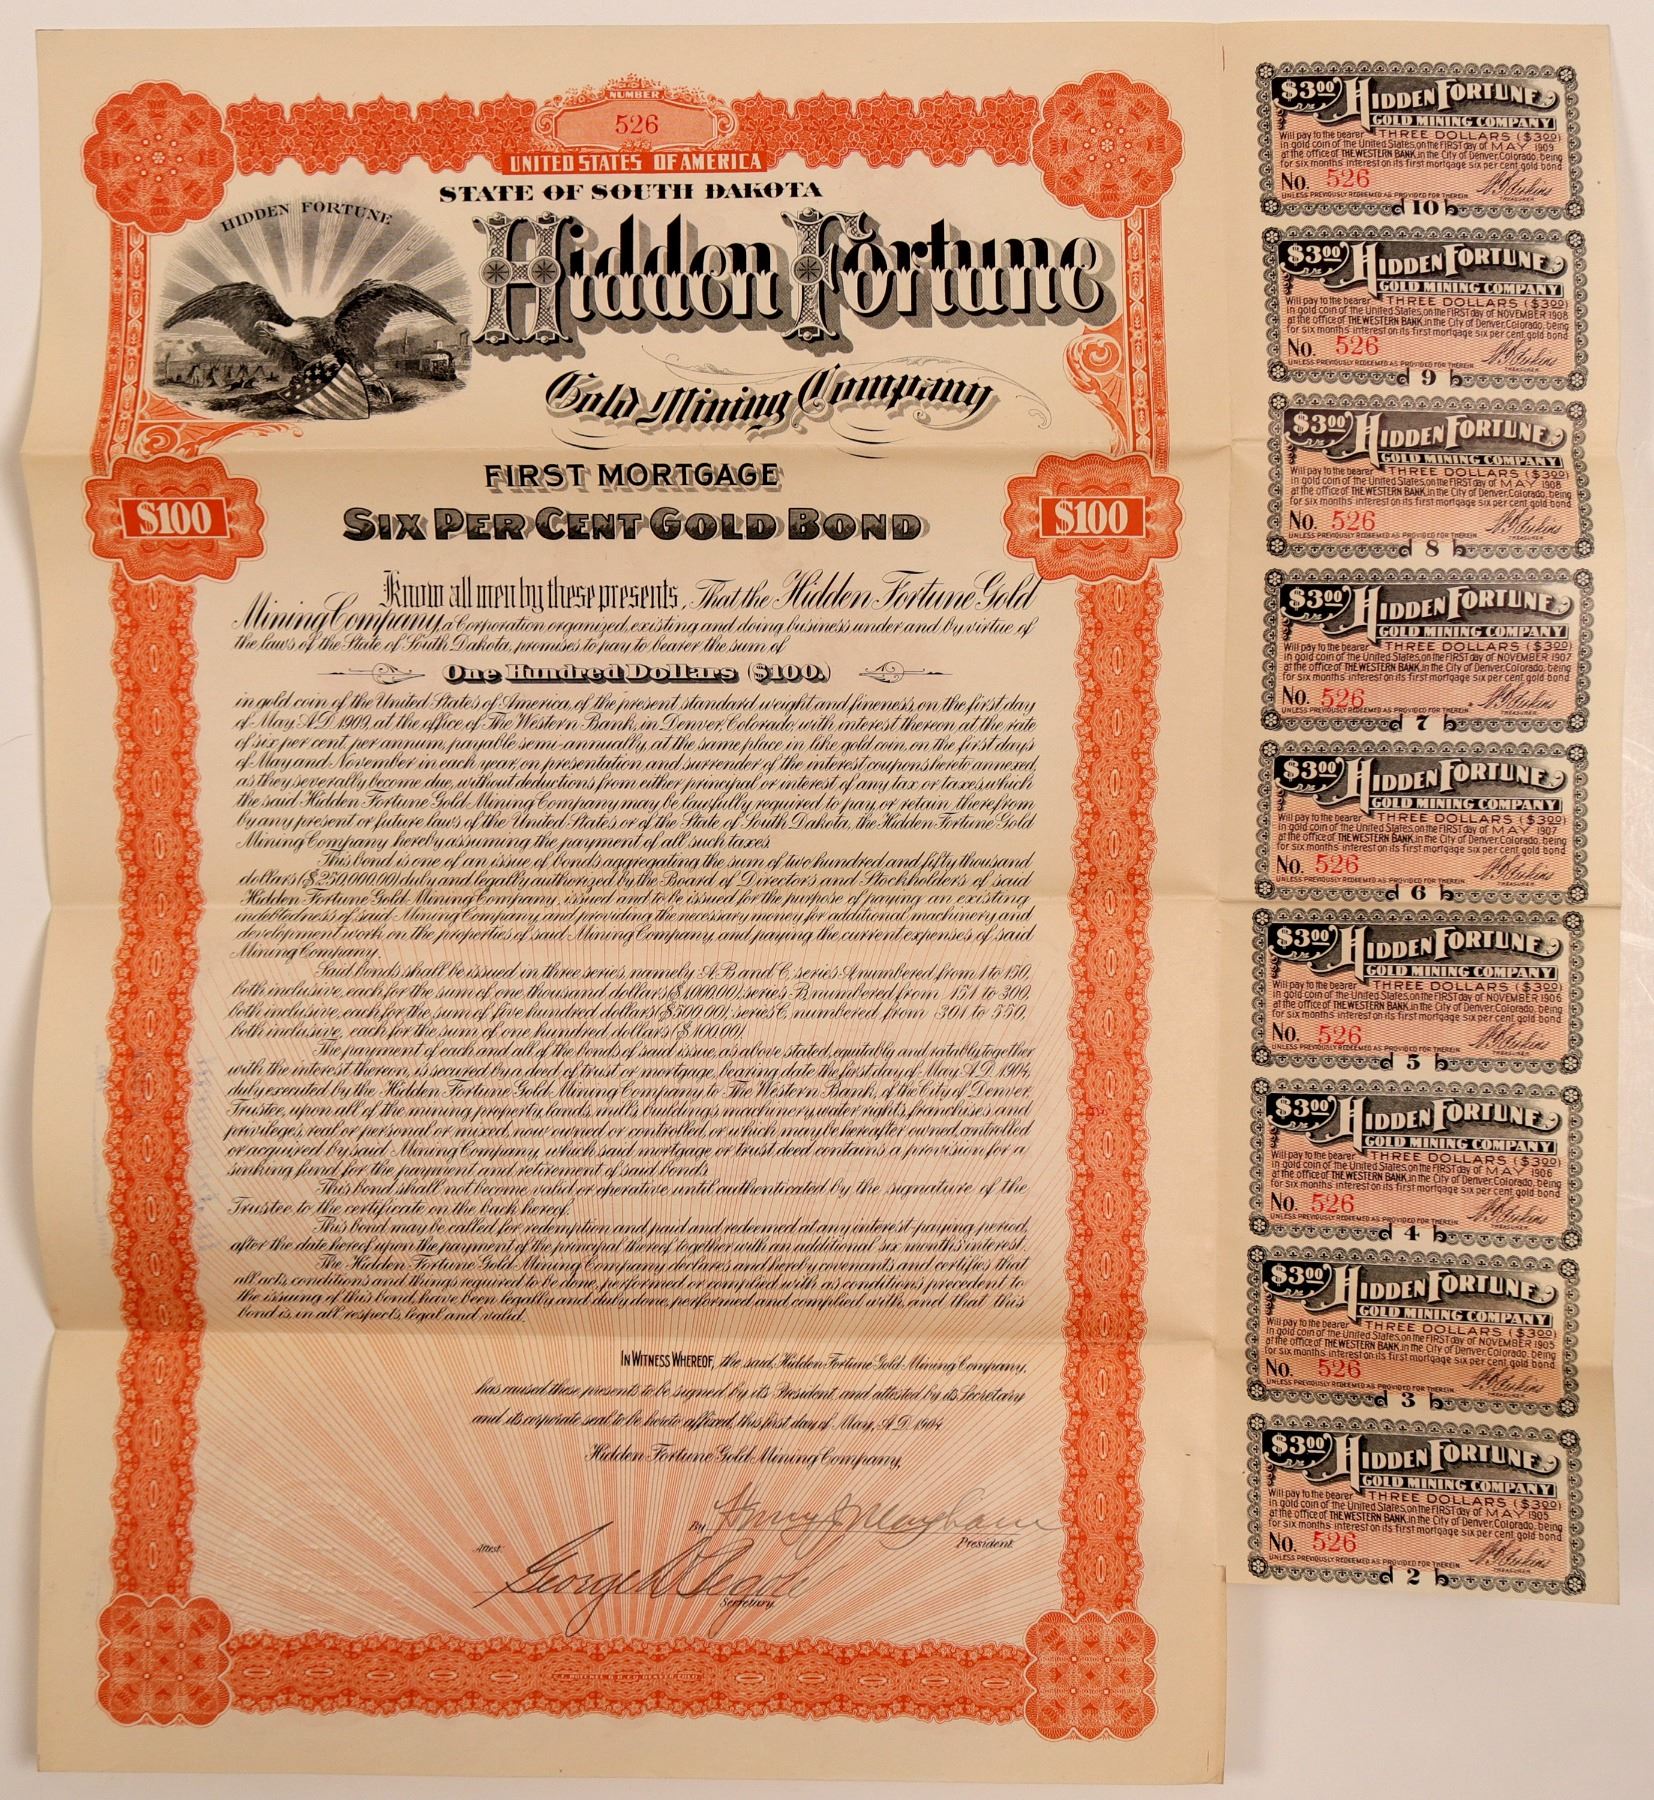 NUMBER
526
UNITED STATES OF AMERICA
STATE OF SOUTH DAKOTA
HIDDEN FORTUNE
Hidden Fortune
Gold Mining Company
FIRST MORTGAGE
SIX PER CENT GOLD BOND
$100
$100
Know all men by these presents, That the Hidden Fortune Gold
Mining Company, a Corporation organized, existing and doing business under and by virtue of
the laws of the State of South Dakota, promises to pay to bearer the sum of
One Hundred Dollars ($100.)
in gold coin of the United States of America, of the present standard weight and fineness, on the first day
of May, A.D. 1909, at the office of The Western Bank, in Denver, Colorado, with interest thereon at the rate
of six per cent. per annum, payable semi-annually, at the same place in like gold coin, on the first days
of May and November in each year, on presentation and surrender of the interest coupons hereto annexed,
as they severally become due, without deductions from either principal or interest of any tax or taxes which
the said Hidden Fortune Gold Mining Company may be lawfully required to pay, or retain therefrom
by any present or future laws of the United States, or of the State of South Dakota, the Hidden Fortune Gold
Mining Company hereby assuming the payment of all such taxes.
This bond is one of an issue of bonds aggregating the sum of two hundred and fifty thousand
dollars ($250,000.00) duly and legally authorized by the Board of Directors and Stockholders of said
Hidden Fortune Gold Mining Company, issued and to be issued for the purpose of paying an existing
indebtedness of said Mining Company, and providing the necessary money for additional machinery and
development work on the properties of said Mining Company, and paying the current expenses of said
Mining Company.
Said bonds shall be issued in three series, namely: A, B, and C, series A numbered from 1 to 150,
both inclusive, each for the sum of one thousand dollars ($1000.00), series B, numbered from 151 to 300,
both inclusive, each for the sum of five hundred dollars ($500.00), series C, numbered from 301 to 550,
both inclusive, each for the sum of one hundred dollars ($100.00)
The payment of each and all of the bonds of said issue, as above stated, equitably and ratably together
with the interest thereon, is secured by a deed of trust or mortgage, bearing date the first day of May, A.D. 1904,
duly executed by the Hidden Fortune Gold Mining Company to The Western Bank, of the City of Denver,
Trustee, upon all of the mining property, lands, mills, buildings, machinery, water rights, franchises and
privileges, real or personal or mixed, now owned or controlled, or which may be hereafter owned, controlled
or acquired by said Mining Company, which said mortgage or trust deed contains a provision for a
sinking fund for the payment and retirement of said bonds.
This bond shall not become valid or operative until authenticated by the signature of the
Trustee, to the certificate on the back hereof.
This bond may be called for redemption and paid and redeemed at any interest-paying period,
after the date hereof upon the payment of the principal thereof together with an additional six months interest.
The Hidden Fortune Gold Mining Company declares and hereby covenants and certifies that
all acts, conditions and things required to be done, performed or complied with as conditions precedent to
the issuing of this bond, have been legally and duly done, performed and complied with, and that this
bond is, in all respects, legal and valid.
IN WITNESS WHEREOF, the said Hidden Fortune Gold Mining Company,
has caused these presents to be signed by its President, and attested by its Secretary
and its corporate seal to be hereto affixed, this first day of May, A.D. 1904
Hidden Fortune Gold Mining Company,
By
President.
Attest:
Secretary.
$3.00 HIDDEN FORTUNE
GOLD MINING COMPANY
Will pay to the bearer THREE DOLLARS ($3.00)
in gold coin of the United States, on the FIRST day of MAY 1909
at the office of THE WESTERN BANK, in the City of Denver, Colorado, being
for six months interest on its first mortgage six per cent. gold bond
No. 526
UNLESS PREVIOUSLY REDEEMED AS PROVIDED FOR THEREIN
TREASURER
10
$3.00 HIDDEN FORTUNE
GOLD MINING COMPANY
Will pay to the bearer THREE DOLLARS ($3.00)
in gold coin of the United States, on the FIRST day of NOVEMBER 1908
at the office of THE WESTERN BANK, in the City of Denver, Colorado, being
for six months interest on its first mortgage six per cent. gold bond
No. 526
UNLESS PREVIOUSLY REDEEMED AS PROVIDED FOR THEREIN
TREASURER
9
$3.00 HIDDEN FORTUNE
GOLD MINING COMPANY
Will pay to the bearer THREE DOLLARS ($3.00)
in gold coin of the United States, on the FIRST day of MAY 1908
at the office of THE WESTERN BANK, in the City of Denver, Colorado, being
for six months interest on its first mortgage six per cent. gold bond
No. 526
UNLESS PREVIOUSLY REDEEMED AS PROVIDED FOR THEREIN
TREASURER
8
$3.00 HIDDEN FORTUNE
GOLD MINING COMPANY
Will pay to the bearer THREE DOLLARS ($3.00)
in gold coin of the United States, on the FIRST day of NOVEMBER 1907
at the office of THE WESTERN BANK, in the City of Denver, Colorado, being
for six months interest on its first mortgage six per cent. gold bond
No. 526
UNLESS PREVIOUSLY REDEEMED AS PROVIDED FOR THEREIN
TREASURER
7
$3.00 HIDDEN FORTUNE
GOLD MINING COMPANY
Will pay to the bearer THREE DOLLARS ($3.00)
in gold coin of the United States, on the FIRST day of MAY 1907
at the office of THE WESTERN BANK, in the City of Denver, Colorado, being
for six months interest on its first mortgage six per cent. gold bond
No. 526
UNLESS PREVIOUSLY REDEEMED AS PROVIDED FOR THEREIN
TREASURER
6
$3.00 HIDDEN FORTUNE
GOLD MINING COMPANY
Will pay to the bearer THREE DOLLARS ($3.00)
in gold coin of the United States, on the FIRST day of NOVEMBER 1906
at the office of THE WESTERN BANK, in the City of Denver, Colorado, being
for six months interest on its first mortgage six per cent. gold bond
No. 526
UNLESS PREVIOUSLY REDEEMED AS PROVIDED FOR THEREIN
TREASURER
5
$3.00 HIDDEN FORTUNE
GOLD MINING COMPANY
Will pay to the bearer THREE DOLLARS ($3.00)
in gold coin of the United States, on the FIRST day of MAY 1906
at the office of THE WESTERN BANK, in the City of Denver, Colorado, being
for six months interest on its first mortgage six per cent. gold bond
No. 526
UNLESS PREVIOUSLY REDEEMED AS PROVIDED FOR THEREIN
TREASURER
4
$3.00 HIDDEN FORTUNE
GOLD MINING COMPANY
Will pay to the bearer THREE DOLLARS ($3.00)
in gold coin of the United States, on the FIRST day of NOVEMBER 1905
at the office of THE WESTERN BANK, in the City of Denver, Colorado, being
for six months interest on its first mortgage six per cent. gold bond
No. 526
UNLESS PREVIOUSLY REDEEMED AS PROVIDED FOR THEREIN
TREASURER
3
$3.00 HIDDEN FORTUNE
GOLD MINING COMPANY
Will pay to the bearer THREE DOLLARS ($3.00)
in gold coin of the United States, on the FIRST day of MAY 1905
at the office of THE WESTERN BANK, in the City of Denver, Colorado, being
for six months interest on its first mortgage six per cent. gold bond
No. 526
UNLESS PREVIOUSLY REDEEMED AS PROVIDED FOR THEREIN
TREASURER
2